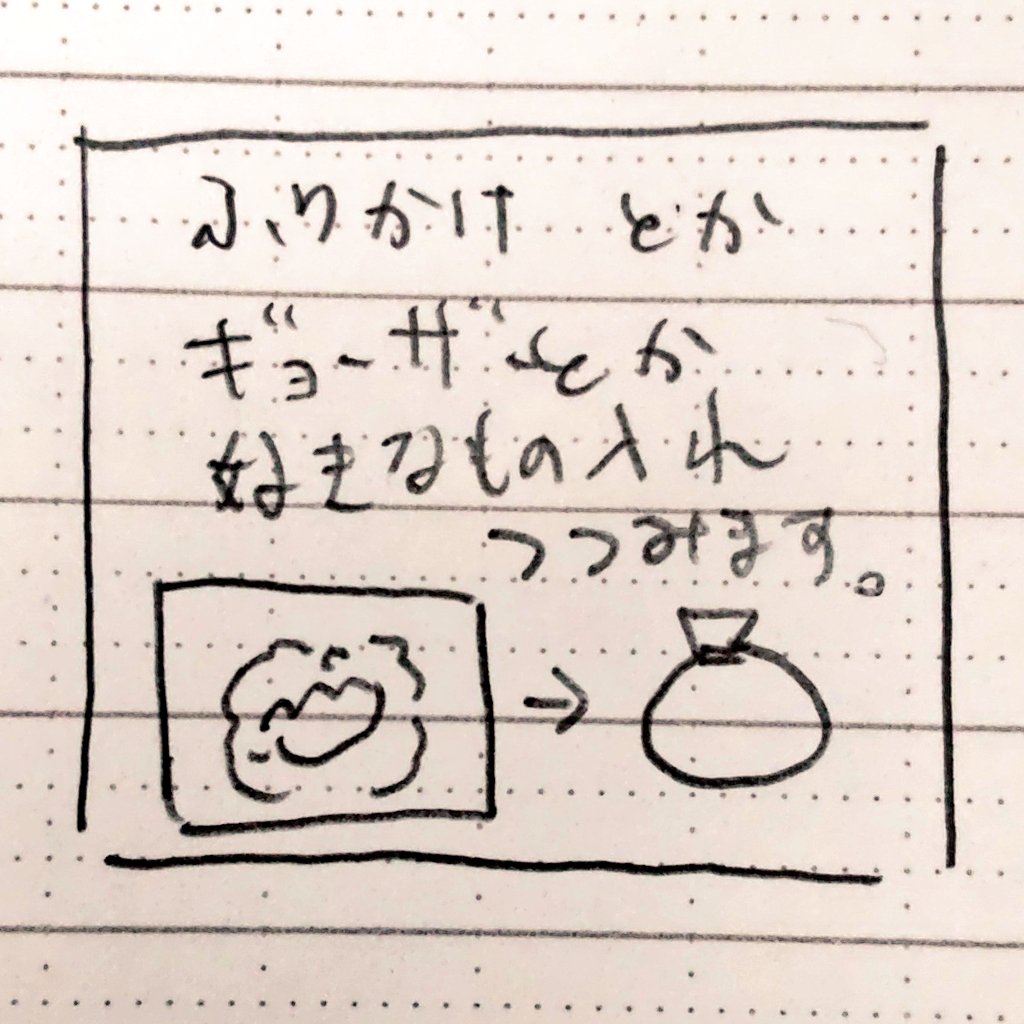 ふりかけ とか
ギョーザとか
好きなもの入れ
つつみます。